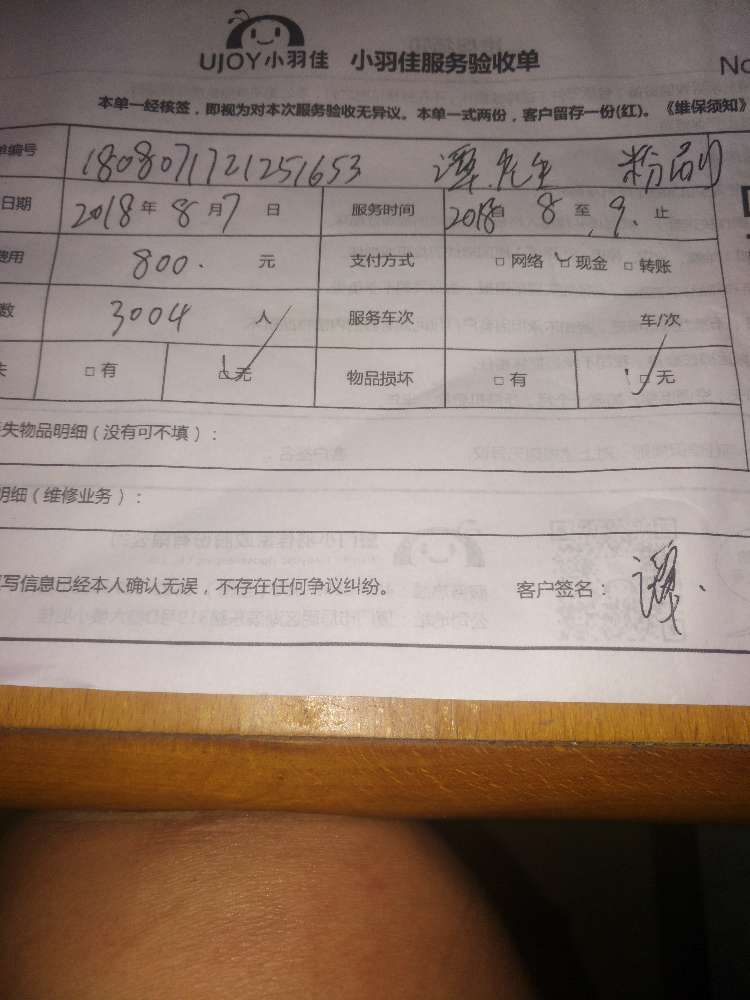 UJOY小羽佳 小羽佳服务验收单 No
本单一经核签，即视为对本次服务验收无异议。本单一式两份，客户留存一份(红)。《维保须知》
单编号 1808071721251653 谭先生 粉刷
日期 2018年8月7日 服务时间 2018自8至9.止
费用 800. 元 支付方式 □网络 □现金 □转账
数 3004 人 服务车次 车/次
失 □有 □无 物品损坏 □有 □无
失物品明细（没有可不填）：
明细（维修业务）：
写信息已经本人确认无误，不存在任何争议纠纷。 客户签名： 谭.